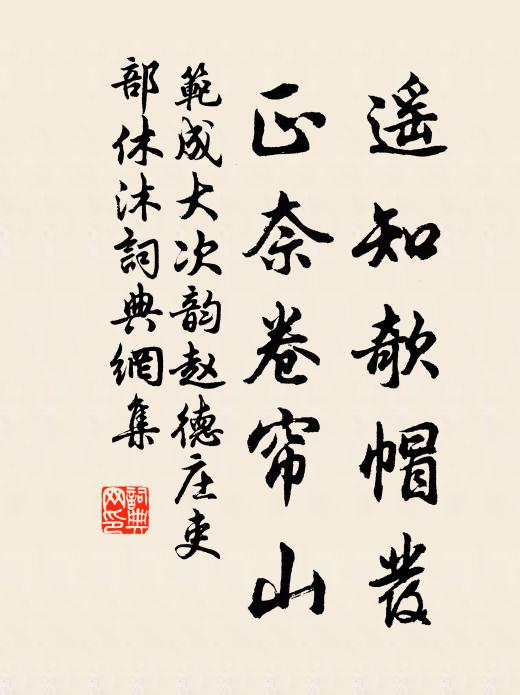 遥知欹帽發
正奈卷帘山
範成大次韵赵德庄吏
部休沐詞典網集
詞典
网印